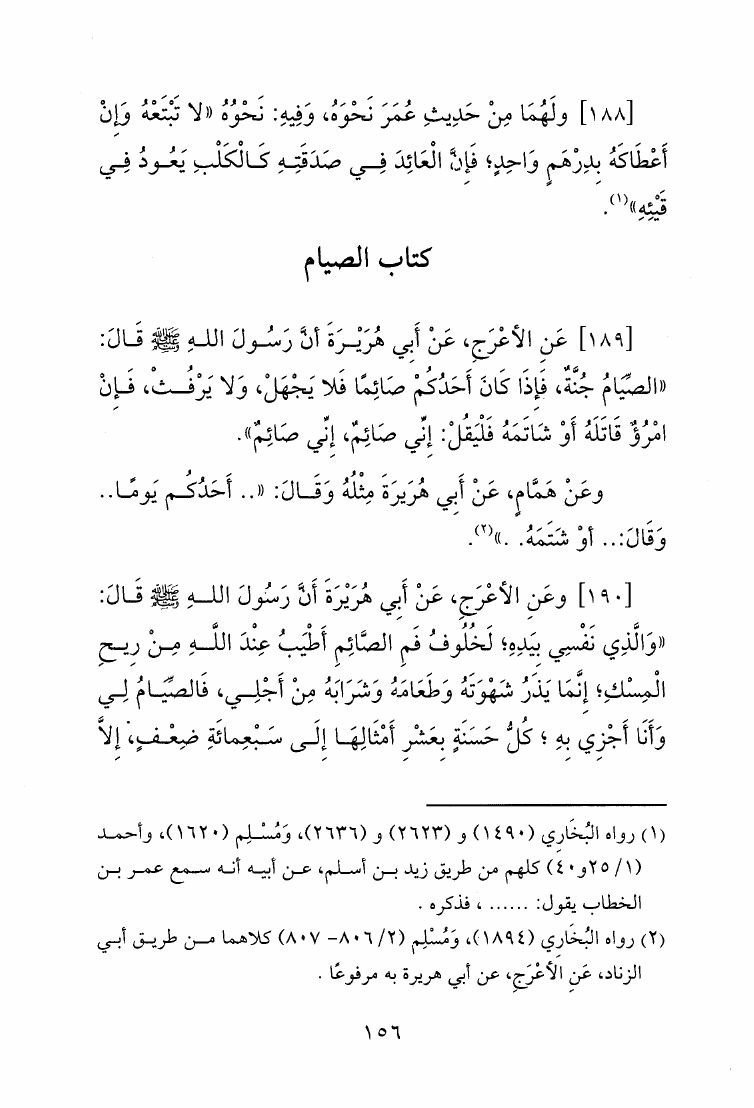 [١٨٨] ولَهُمَا مِنْ حَدِيثِ عُمَرَ نَحْوَهُ، وَفِيهِ: نَحْوُهُ «لا تَبْتَعْهُ وَإِنْ
أَعْطَاكَهُ بِدِرْهَمٍ وَاحِدٍ؛ فَإِنَّ الْعَائِدَ فِي صَدَقَتِهِ كَالْكَلْبِ يَعُودُ فِي
قَيْئِهِ»(١).
كتاب الصيام
[١٨٩] عَنِ الأَعْرَجِ، عَنْ أَبِي هُرَيْرَةَ أنَّ رَسُولَ اللهِ ﷺ قَالَ:
«الصِّيَامُ جُنَّةٌ، فَإِذَا كَانَ أَحَدُكُمْ صَائِمًا فَلا يَجْهَلْ، وَلا يَرْفُثْ، فَإِنْ
امْرُؤٌ قَاتَلَهُ أَوْ شَاتَمَهُ فَلْيَقُلْ: إِنِّي صَائِمٌ، إِنِّي صَائِمٌ».
وعَنْ هَمَّامٍ، عَنْ أَبِي هُرَيرَةَ مِثْلُهُ وَقَالَ: «.. أَحَدُكُم يَومًا..
وَقَالَ:.. أوْ شَتَمَهُ. .»(٢).
[١٩٠] وعَنِ الأَعْرَجِ، عَنْ أَبِي هُرَيْرَةَ أَنَّ رَسُولَ اللهِ ﷺ قَالَ:
«وَالَّذِي نَفْسِي بِيَدِهِ؛ لَخُلُوفُ فَمِ الصَّائِمِ أَطْيَبُ عِنْدَ اللَّهِ مِنْ رِيحِ
الْمِسْكِ؛ إِنَّمَا يَذَرُ شَهْوَتَهُ وَطَعَامَهُ وَشَرَابَهُ مِنْ أَجْلِي، فَالصِّيَامُ لِي
وَأَنَا أَجْزِي بِهِ ؛ كُلُّ حَسَنَةٍ بِعَشْرِ أَمْثَالِهَا إِلَى سَبْعِمائَةِ ضِعْفٍ، إِلاَّ
(١) رواه البُخَاري (١٤٩٠) و (٢٦٢٣) و (٢٦٣٦)، وَمُسْلِم (١٦٢٠)، وأحمد
(٢٥/١و٤٠) كلهم من طريق زيد بن أسلم، عن أبيه أنه سمع عمر بن
الخطاب يقول: ...... ، فذكره .
(٢) رواه البُخَاري (١٨٩٤)، وَمُسْلِم (٨٠٦/٢- ٨٠٧) كلاهما من طريق أبي
الزناد، عَنِ الأَعْرَجِ، عن أبي هريرة به مرفوعًا .
١٥٦